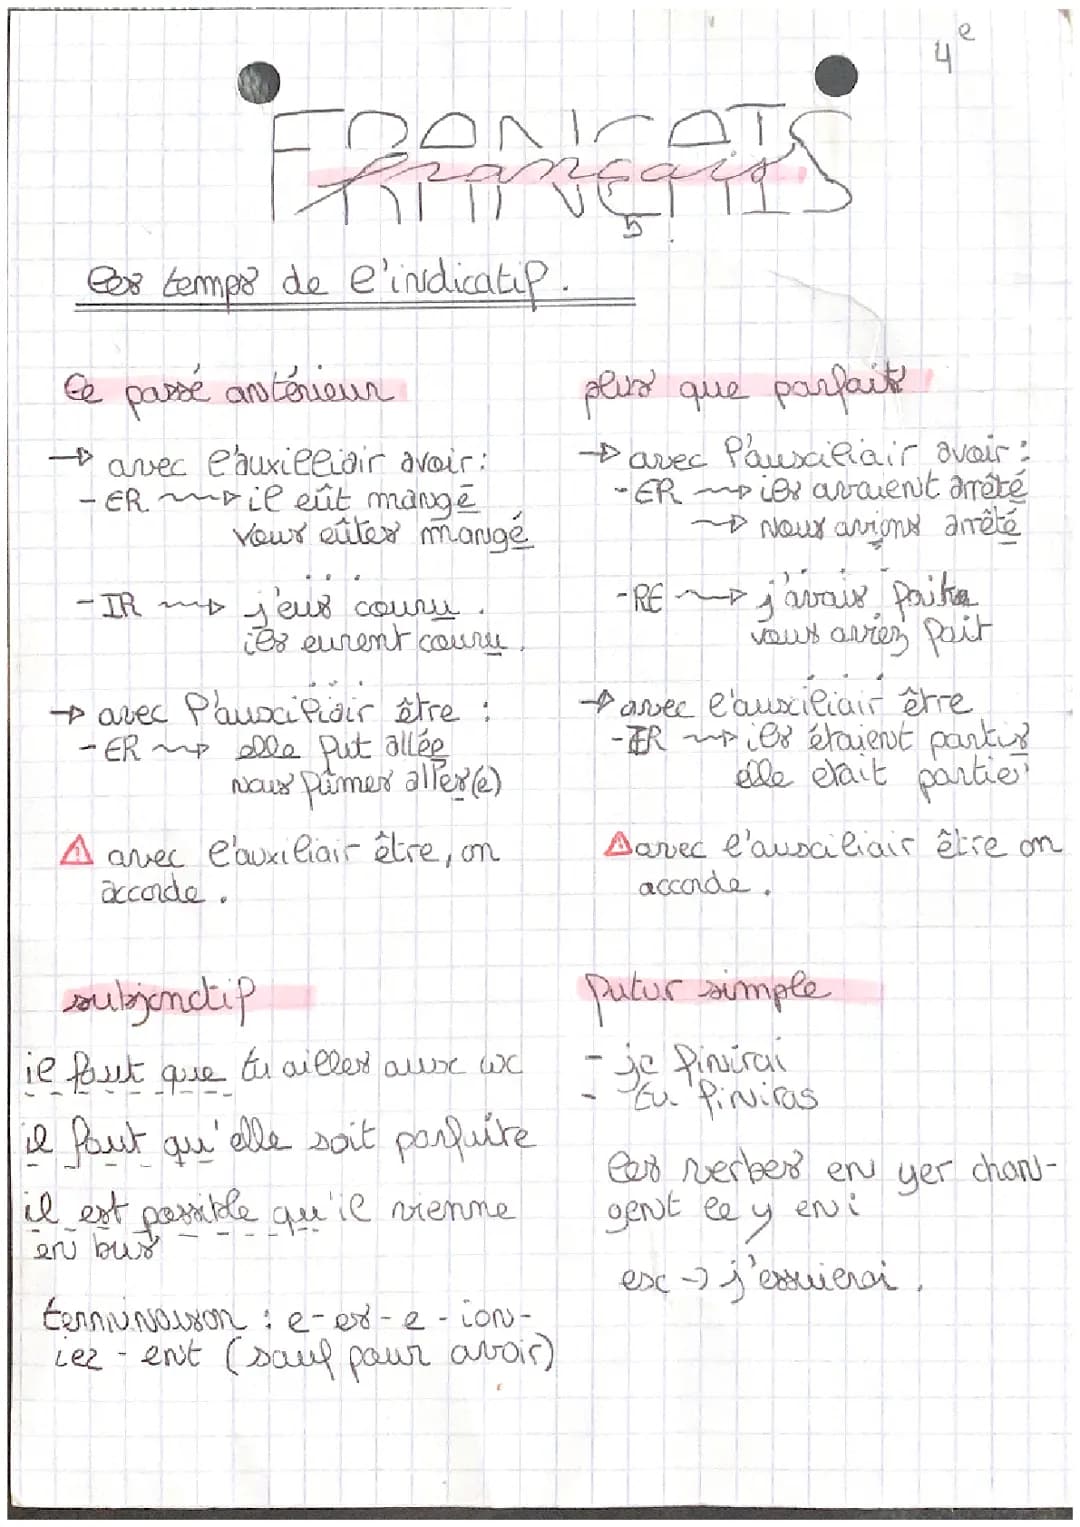 4e
FRANÇAIS
français
les temps de l'indicatif.
le passé antérieur
→ avec l'auxilliair avoir:
- ER → il eût mangé
vous eûtes mangé
- IR → j'eus couru.
ils eurent couru.
→ avec l'auxciliair être :
- ER → elle fut allée
nous fûmes allés(e)
⚠ avec l'auxiliair être, on
accorde.
plus que parfait
→ avec l'auxciliair avoir :
- ER → ils avaient arrêté
→ nous avions arrêté
- RE → j'avais fait
vous aviez fait
→ avec l'auxciliair être
- IR → ils étaient partis
elle etait partie
⚠ avec l'auxciliair être on
accorde.
subjonctif
il faut que tu ailles aux wc
il faut qu'elle soit parfaite
il est possible qu'il vienne
en bus
terminaison : e - es - e - ion -
iez - ent (sauf pour avoir)
futur simple
- je finirai
- tu finiras
les verbes en yer chan-
gent le y en i
ex → j'essuierai.